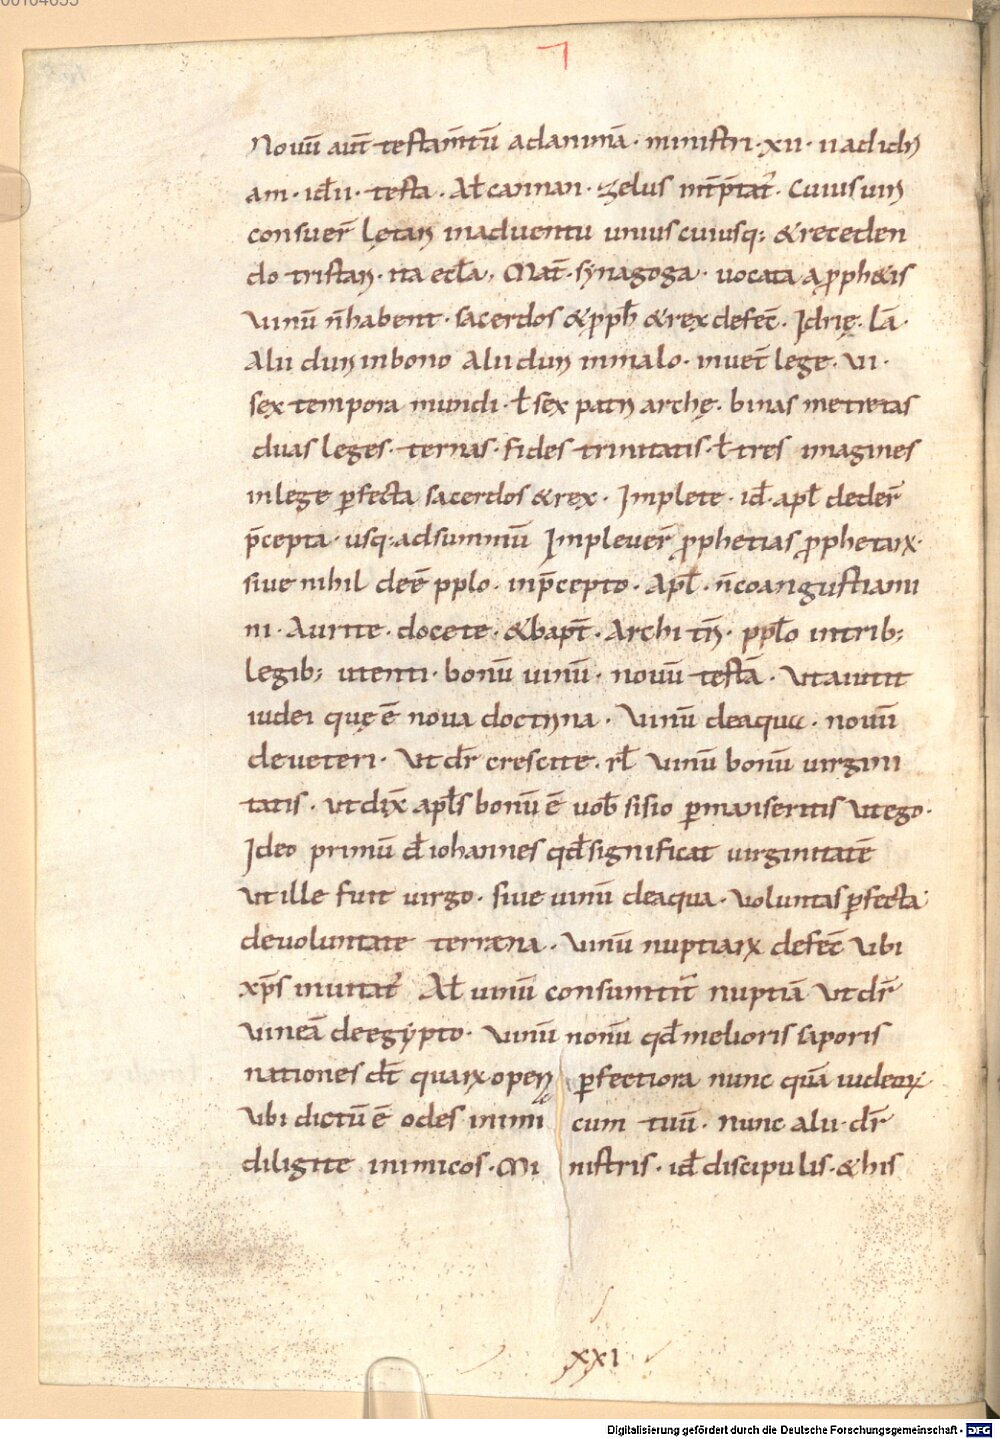 00104655
Nouū aut̄ testam̄tū adanimā · ministri · xii · uadichꝫ
am · id̄ii · testa · Aƚ cannan · zelus int̄p̄tat᷑ · Cuius urī
consuer̄ lętari inaduentu uniuscuiusq; & receden
do tristari · ita eccƚa, Mat̄ · synagoga · uocata apph&is
Uinū n̄habent · sacerdos & pph̄ & rex defec̄ · Idrię · Lā ·
Alii dūr inbono Alii dūr inmalo · inuet̄ lege · VI ·
sex tempora mundi · ƚ sex patriarchę · binas metretas
duas leges · ternas · fides trinitatis · ƚ tres imagines
inlege ꝑfecta sacerdos & rex · Implete · id̄ · apƚ deder̄
p̄cepta · usq; adsummū Impleuer̄ ꝓphetias ꝓphetaꝝ ·
siue nihil deē pplo · inp̄cepto · Apƚ · n̄coangustiami
ni · Aurite · docete · & bapt̄ · Archi tr̄i · ppƚo intrib;
legib; utenti · bonū uinū · nouū testā · Ut aiunt
iudei quę ē noua doctrina · Uinū deaqua · nouū
deueteri · Ut dr̄ crescite · rƚ Uinū bonū uirgini
tatis · ut dix̄ apƚs bonū ē uob̄ sisio ꝑmanseritis ut ego ·
Ideo primū d̄ iohannes qd̄ significat uirginitatē
Ut ille fuit uirgo · siue uinū deaqua · uoluntas ꝑfecta
deuoluntate terrena · Uinū nuptiaꝝ defec̄ Ubi
xp̄s inuitat᷑ Aƚ uinū consumit᷑ nuptiā Ut dr̄
Uineā deegypto · Uinū nonū qd̄ melioris saporis
nationes dt̄ quaꝝ operꝫ ꝑfectiora nunc quā iudeoꝝ
Ubi dictū ē odes inimi cum tuū · Nunc alii · dr̄
diligite inimicos · Mi nistris · id̄ discipulis · & his
XXI
Digitalisierung gefördert durch die Deutsche Forschungsgemeinschaft - DFG